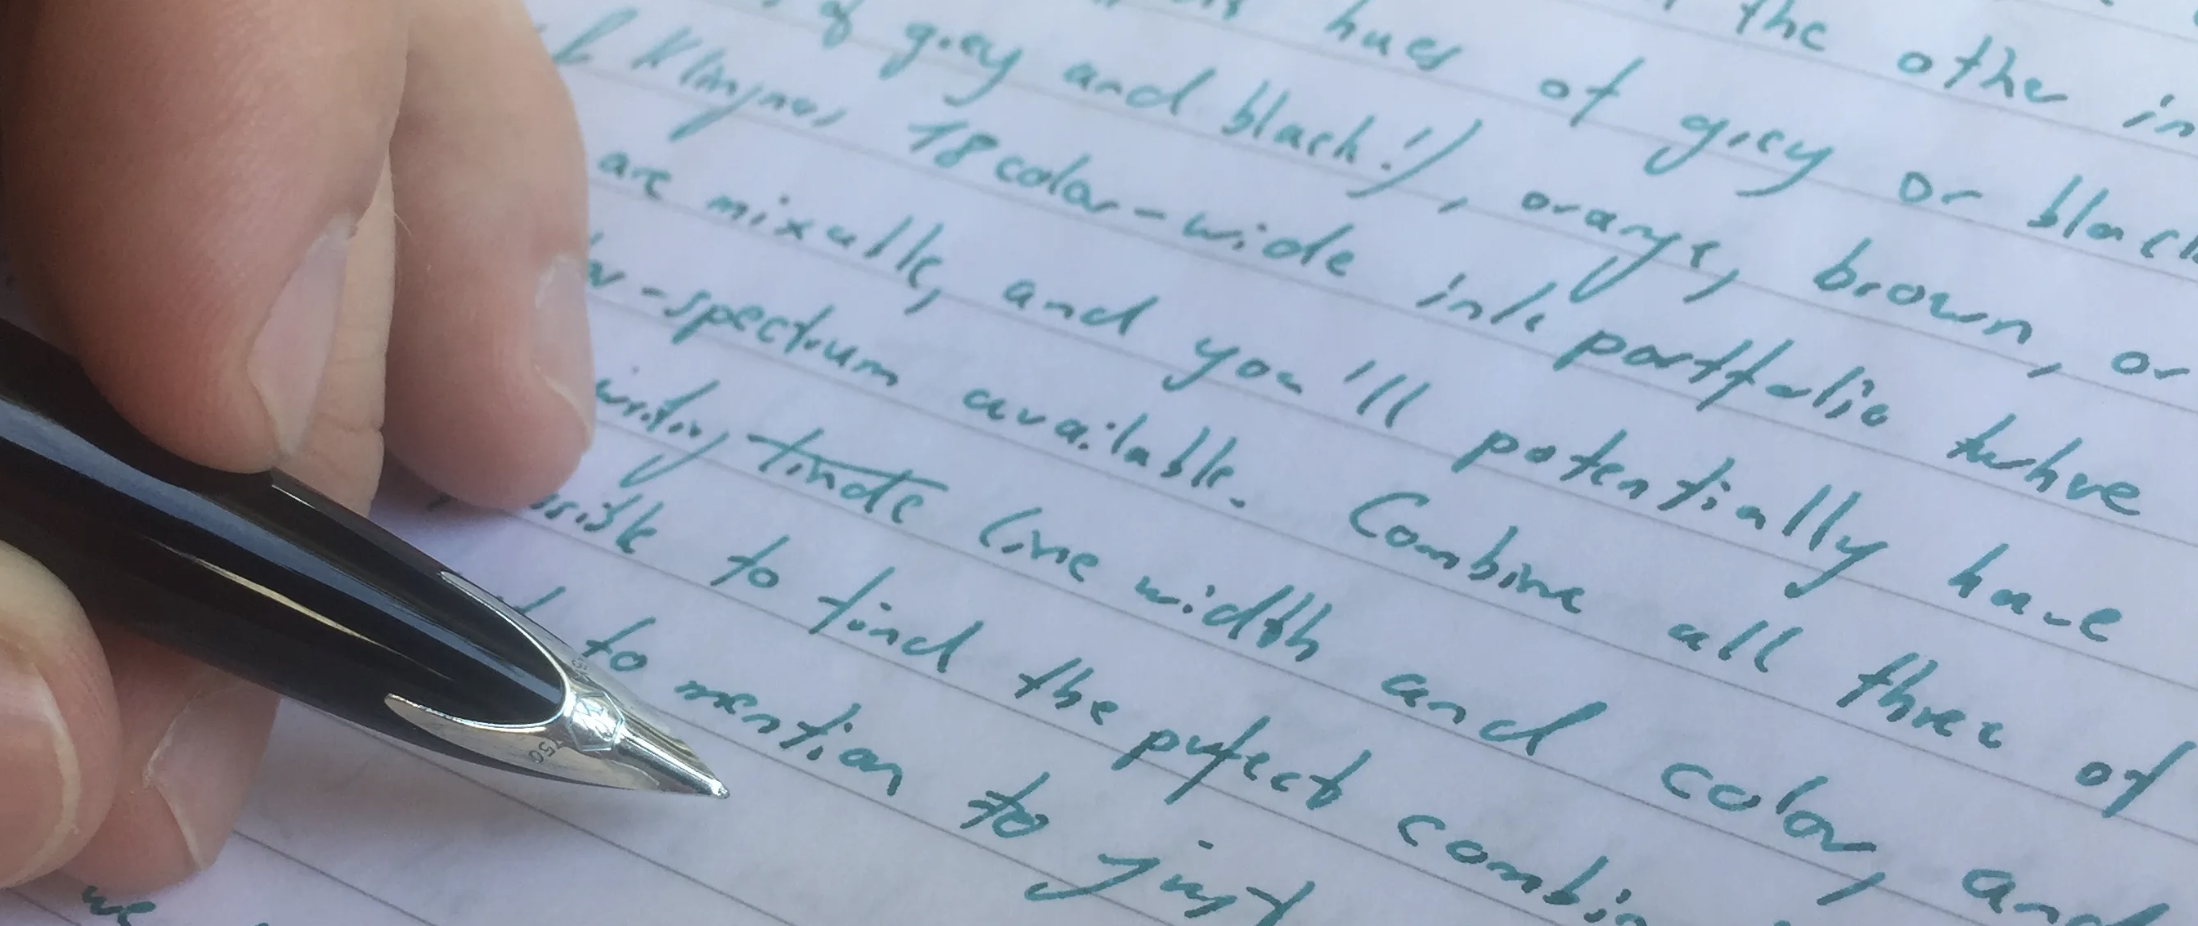 the othe in
hues of grey or black
of grey and black!), orange, brown, or
18 color-wide ink portfolio
are mixable, and you'll potentially have
-spectrum available. Combine all three of
line width and color, and
to find the perfect combin
to mention to just
we
750